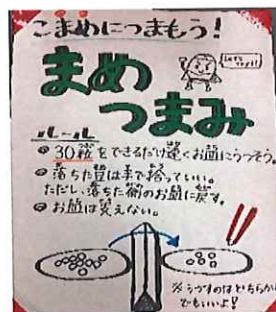 こまめにつまもう!
まめ
つまみ
Let's try!!
ルール
30粒をできるだけ速くお皿にうつそう。
落ちた豆は手で拾っていい。
ただし、落ちた側のお皿に戻す。
お皿は
えない。
※うつすのはどちらから
でもいいよ!